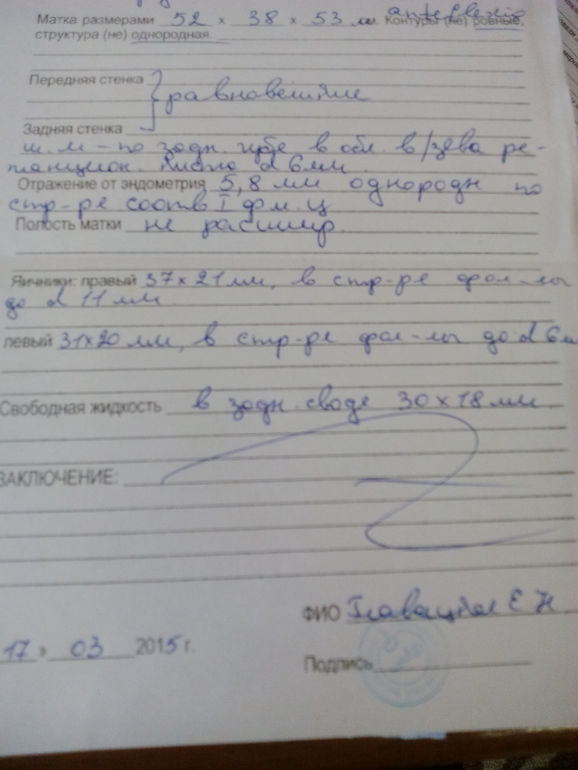 anteflexio
Матка размерами 52 х 38 х 53 мм. Контуры (не) ровные,
структура (не) однородная.
Передняя стенка
равновеликие
Задняя стенка
ш.м – по задн. губе в обл. в/зева ре-
танцион. киста d 6мм.
Отражение от эндометрия 5,8 мм однородн по
стр-ре соотв I ф.м.ц
Полость матки не расшир.
Яичники: правый 37х21мм, в стр-ре фол-лы
до d 11 мм.
левый 31х20 мм, в стр-ре фол-лы до d 6м
Свободная жидкость в задн. своде 30х18мм.
ЗАКЛЮЧЕНИЕ:
ФИО Е Н
17 » 03 2015 г.
Подпись